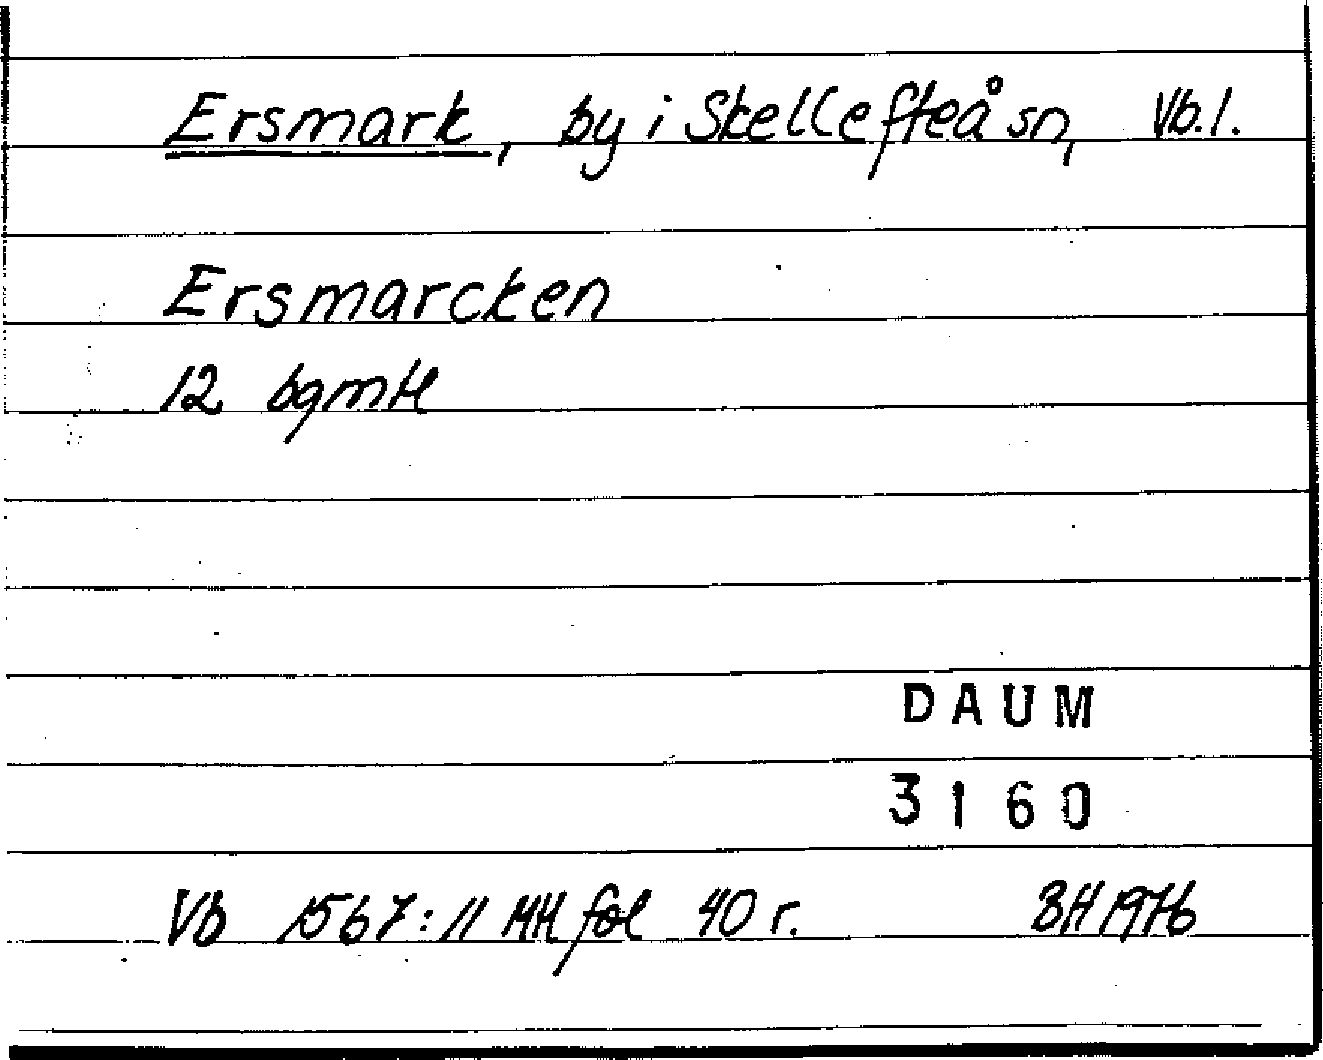 Ersmark, by i Skellefteå sn, Vb.l.
Ersmarcken
12 bgmtl
DAUM
3160
Vb 1567:11 MH fol 40 r. BH 1976